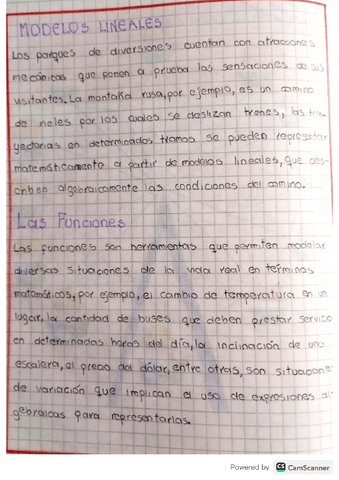 MODELOS LINEALES
Los parques de diversiones cuentan con atracciones
mecánicas que ponen a prueba las sensaciones de sus
visitantes. La montaña rusa, por ejemplo, es un camino
de rieles por los cuales se deslizan trenes, las tra-
yectorias en determinados tramos se pueden representar
matemáticamente a partir de modelos lineales, que des-
criben algebraicamente las condiciones del camino.
Las Funciones
Las funciones son herramientas que permiten modelar
diversas situaciones de la vida real en términos
matemáticos, por ejemplo, el cambio de temperatura en un
lugar, la cantidad de buses que deben prestar servicio
en determinadas horas del día, la inclinación de una
escalera, el precio del dólar, entre otras, son situaciones
de variación que implican el uso de expresiones al-
gebraicas para representarlas.
Powered by CS CamScanner